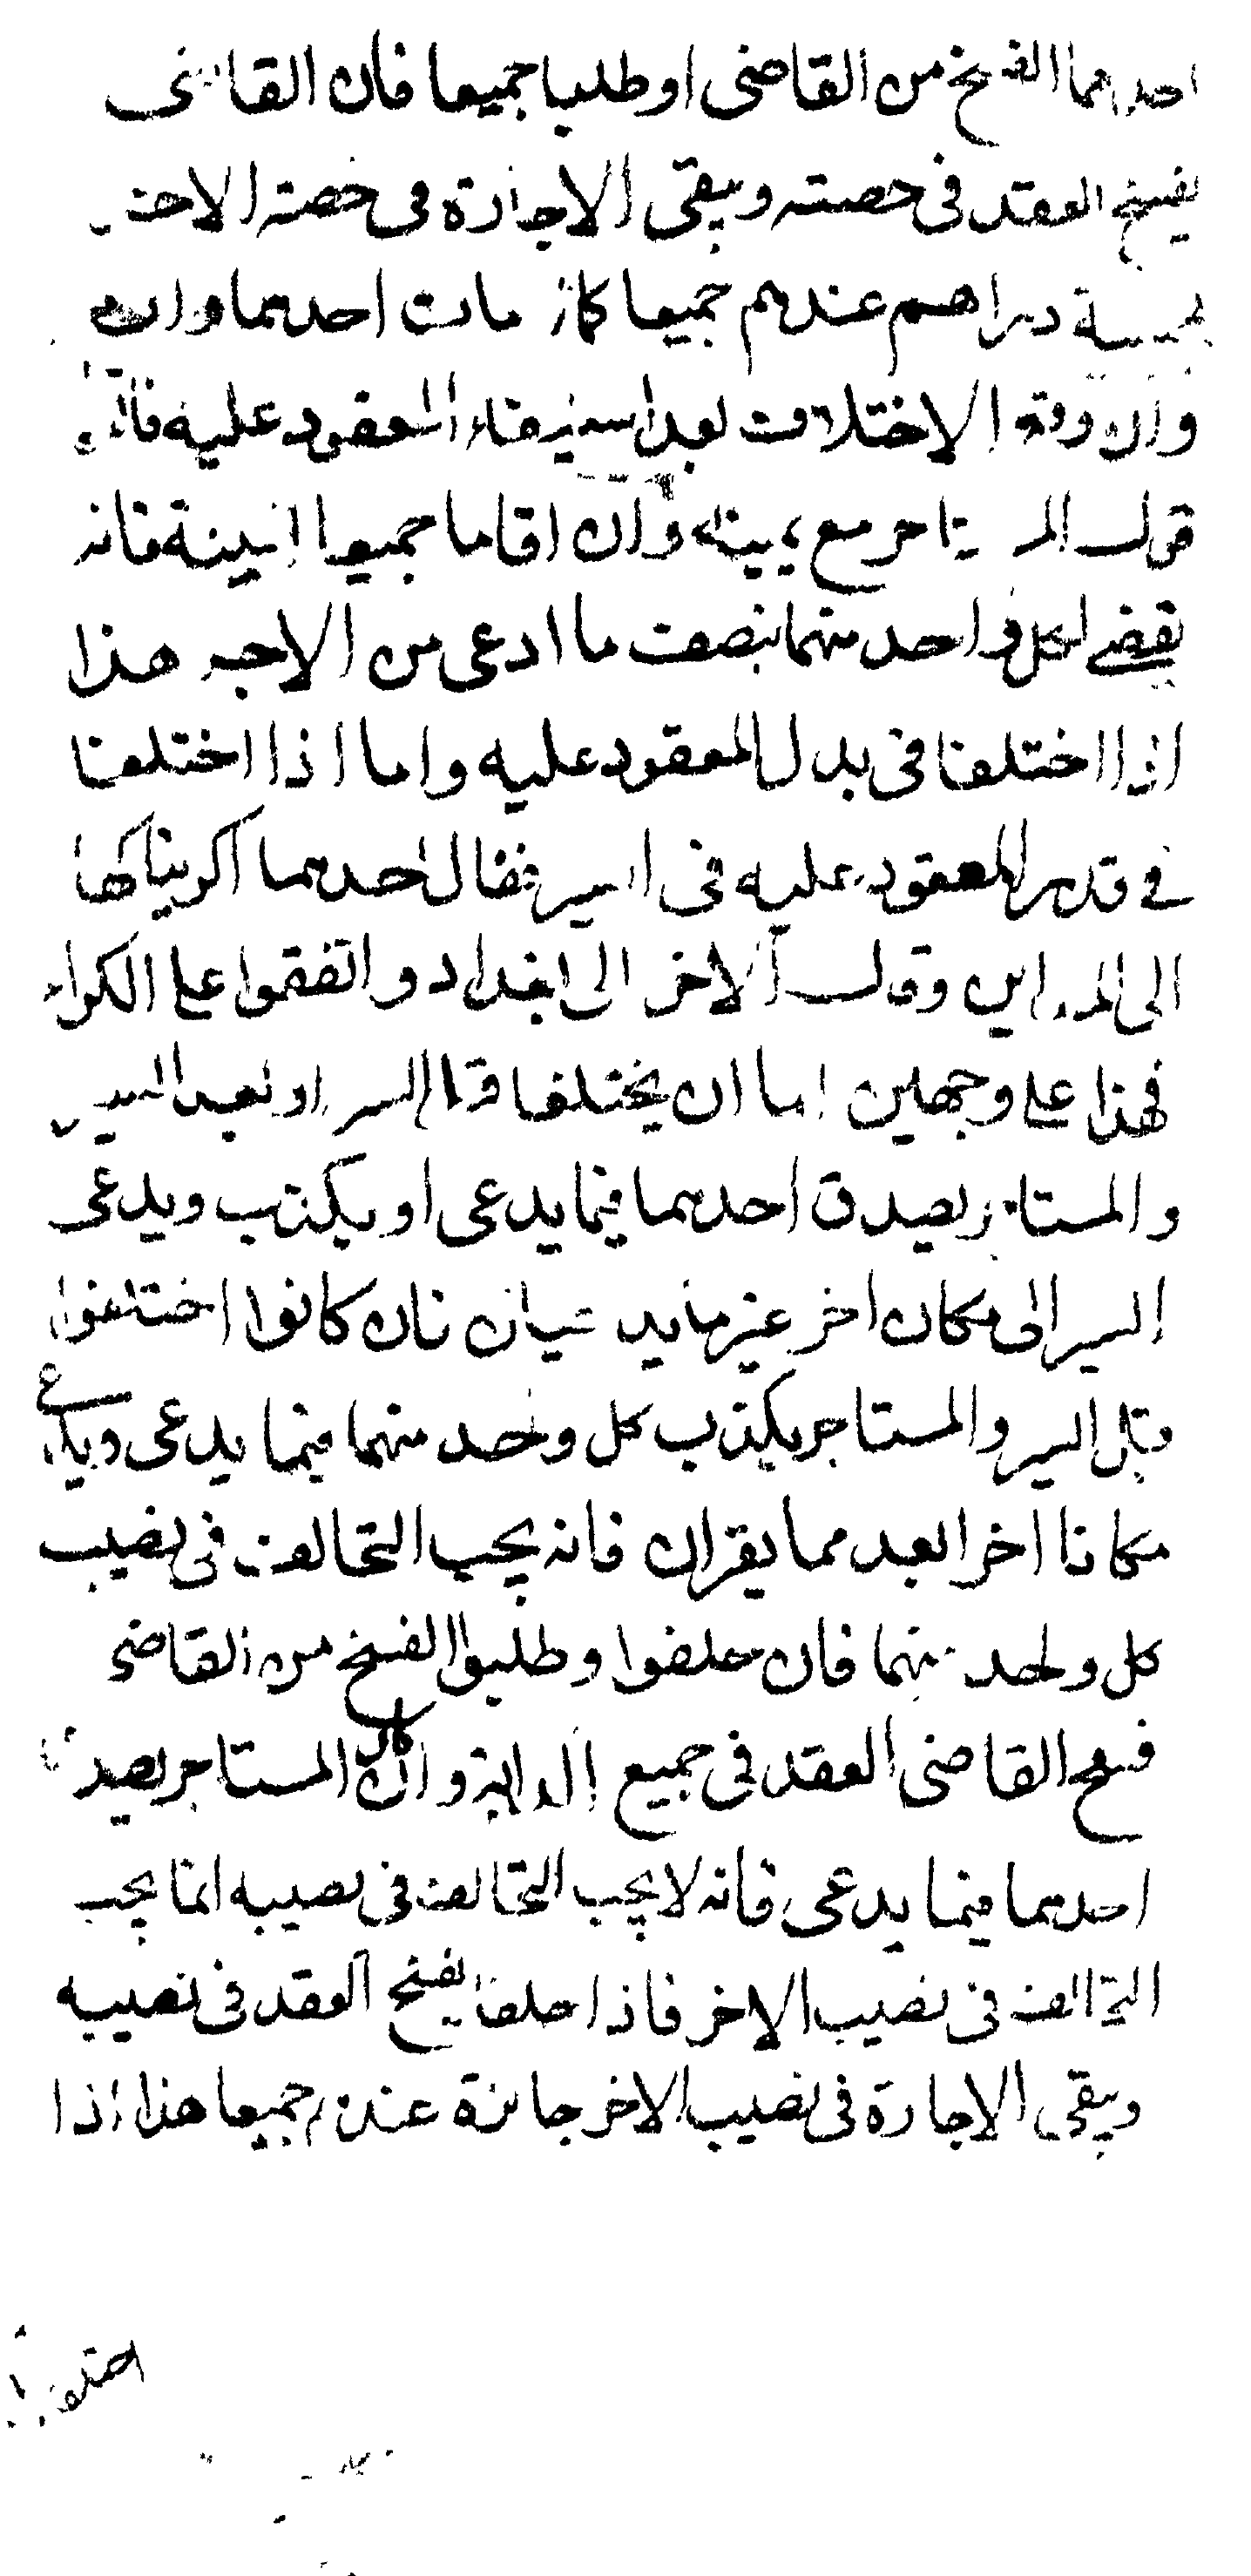 احدهما الفسخ من القاضى او طلبا جميعا فان القاضى
يفسخ العقد فى حصته ويبقى الاجارة فى حصة الاخر
بخمسة دراهم عندهم جميعا كما مات احدهما وان
وان وقع الاختلاف بعد استيفاء المعقود عليه فالقول
قول المستاجر مع يمينه وان اقاما جميعا البينة فانه
يقضى لكل واحد منهما بنصف ما ادعى من الاجر هذا
اذا اختلفا فى بدل المعقود عليه واما اذا اختلفا
فى قدر المعقود عليه فى السير فقال احدهما اكريناكها
الى المداين وقال الاخر الى بغداد واتفقوا على الكراء
فهذا على وجهين اما ان يختلفا قبل السير او بعد السير
والمستاجر يصدق احدهما فيما يدعى او يكذب ويدعى
السير الى مكان اخر غير ما يدعيان فان كانوا اختلفوا
قبل السير والمستاجر يكذب كل واحد منهما فيما يدعى ويدعى
مكانا اخر ابعد مما يقران فانه يجب التحالف فى نصيب
كل واحد منهما فان حلفوا وطلبوا الفسخ من القاضى
فسخ القاضى العقد فى جميع الدابة وان كان المستاجر يصدق
احدهما فيما يدعى فانه لا يجب التحالف فى نصيبه انما يجب
التحالف فى نصيب الاخر فاذا حلفا يفسخ العقد فى نصيبه
ويبقى الاجارة فى نصيب الاخر جائزة عندهم جميعا هذا اذا